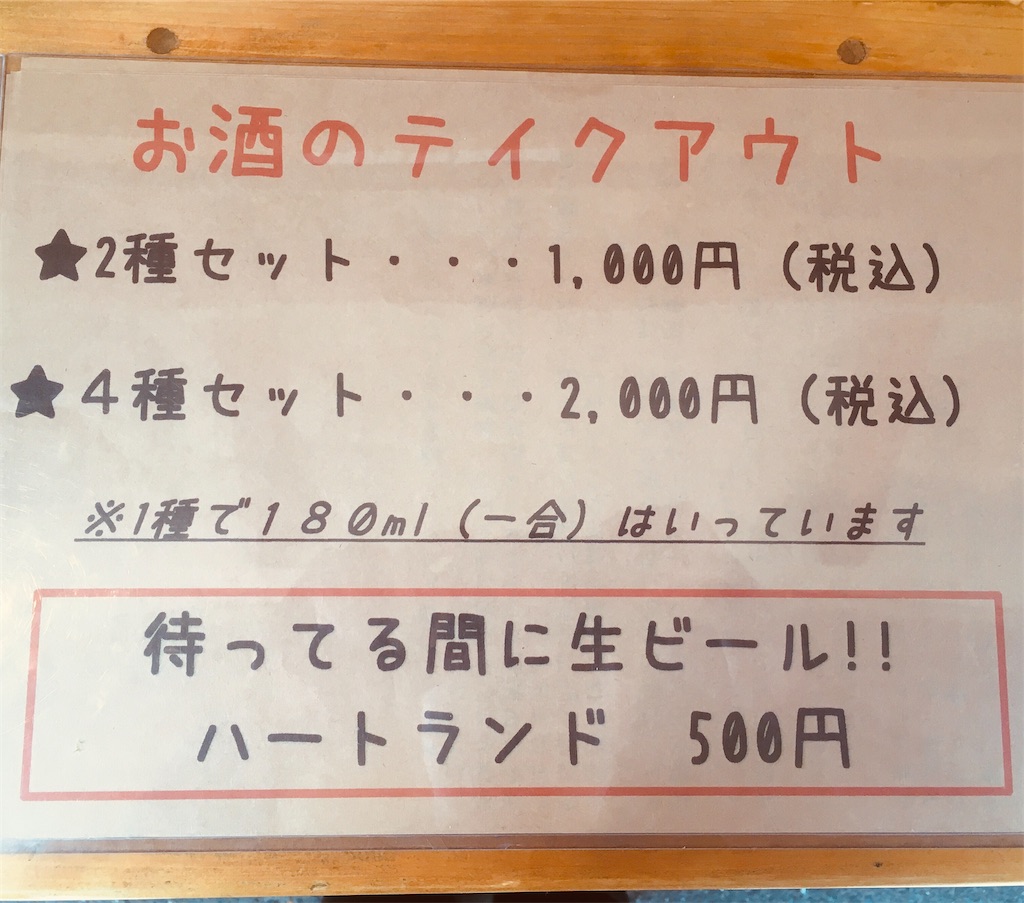 お酒のテイクアウト
★2種セット・・・1,000円（税込）
★４種セット・・・2,000円（税込）
※1種で１８０ml（一合）はいっています
待ってる間に生ビール!!
ハートランド　500円